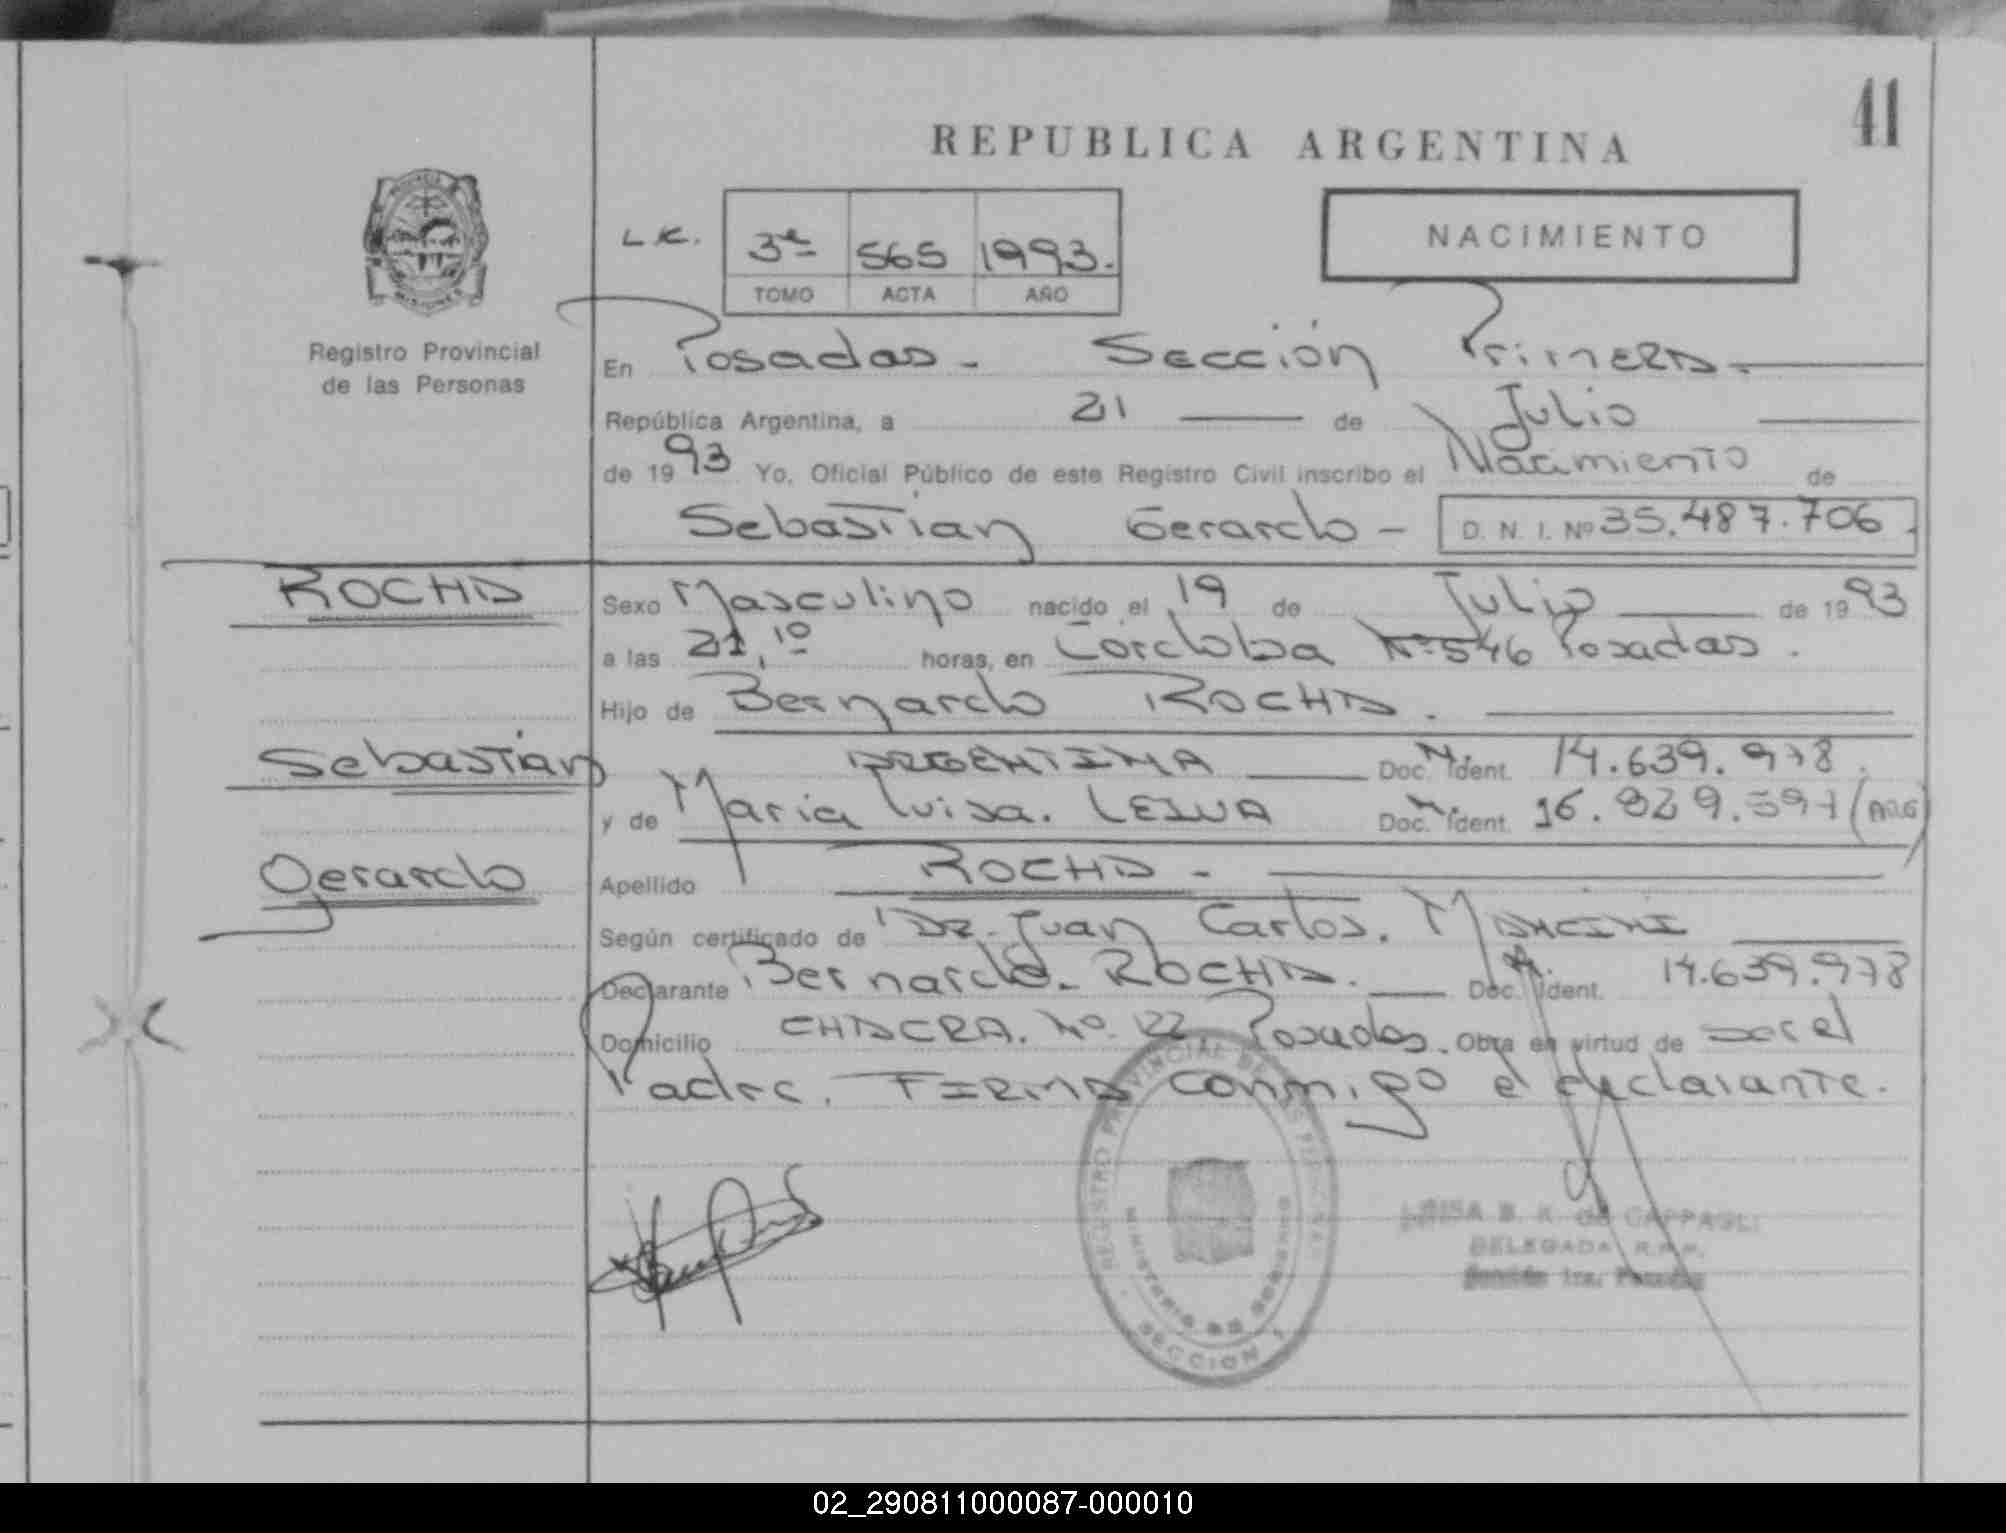 41
REPUBLICA ARGENTINA
NACIMIENTO
3º 565 1993.
TOMO ACTA AÑO
PROVINCIA DE MISIONES
Registro Provincial
de las Personas
En Posadas - Sección Primera.
República Argentina, a 21 de Julio
de 1993 Yo, Oficial Público de este Registro Civil inscribo el Nacimiento de
Sebastian Gerardo - D. N. I. Nº 35.487.706.
ROCHA
Sexo Masculino nacido el 19 de Julio de 1993
a las 21,10 horas, en Cordoba Nº 546 Posadas.
Hijo de Bernardo ROCHA.
Sebastian
ARGENTINA Doc. Ident. 14.639.978.
y de Maria Luisa. LEIVA Doc. Ident. 16.829.597 (ARG)
Gerardo
Apellido ROCHA -
Según certificado de Dr. Juan Carlos. MANCINI
Declarante Bernardo. ROCHA. Doc. Ident. 14.639.978
Domicilio CHACRA. Nº. 122 Posadas. Obra en virtud de ser el
Padre. FIRMA conmigo el declarante.
REGISTRO PROVINCIAL DE LAS PERSONAS
MINISTERIO DE GOBIERNO
SECCION 1
LUISA B. K. de CAPPAGLI
DELEGADA R.P.P.
Sección 1ra. Posadas
02_290811000087-000010